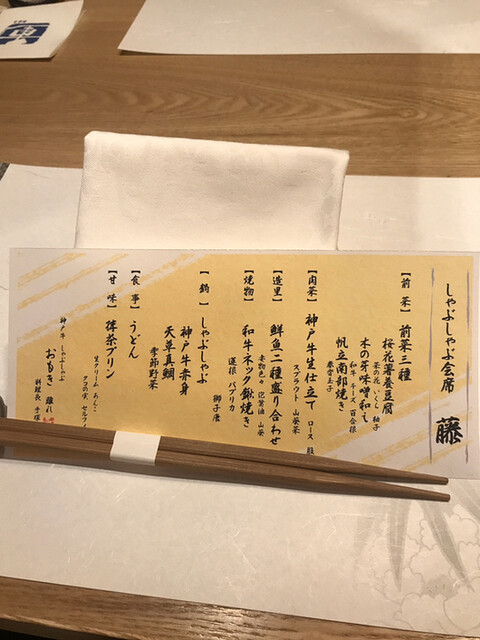 しゃぶしゃぶ会席 藤
【前菜】 前菜三種
桜花薯蕷豆腐
菜の花 いくら 柚子
木の芽味噌和え
和牛 チーズ 百合根
帆立南部焼き
養老玉子
【肉菜】 神戸牛生仕立て ロース
スプラウト 山葵菜
【造里】 鮮魚二種盛り合わせ
妻物色々 山葵
【焼物】 和牛ネック鍬焼き
蓮根 パプリカ 獅子唐
【鍋】 しゃぶしゃぶ
神戸牛赤身
天草真鯛
季節野菜
【食事】 うどん
【甘味】 抹茶プリン
生クリーム あんこ
神戸牛 しゃぶしゃぶ
おもき 離れ
料理長 手塚